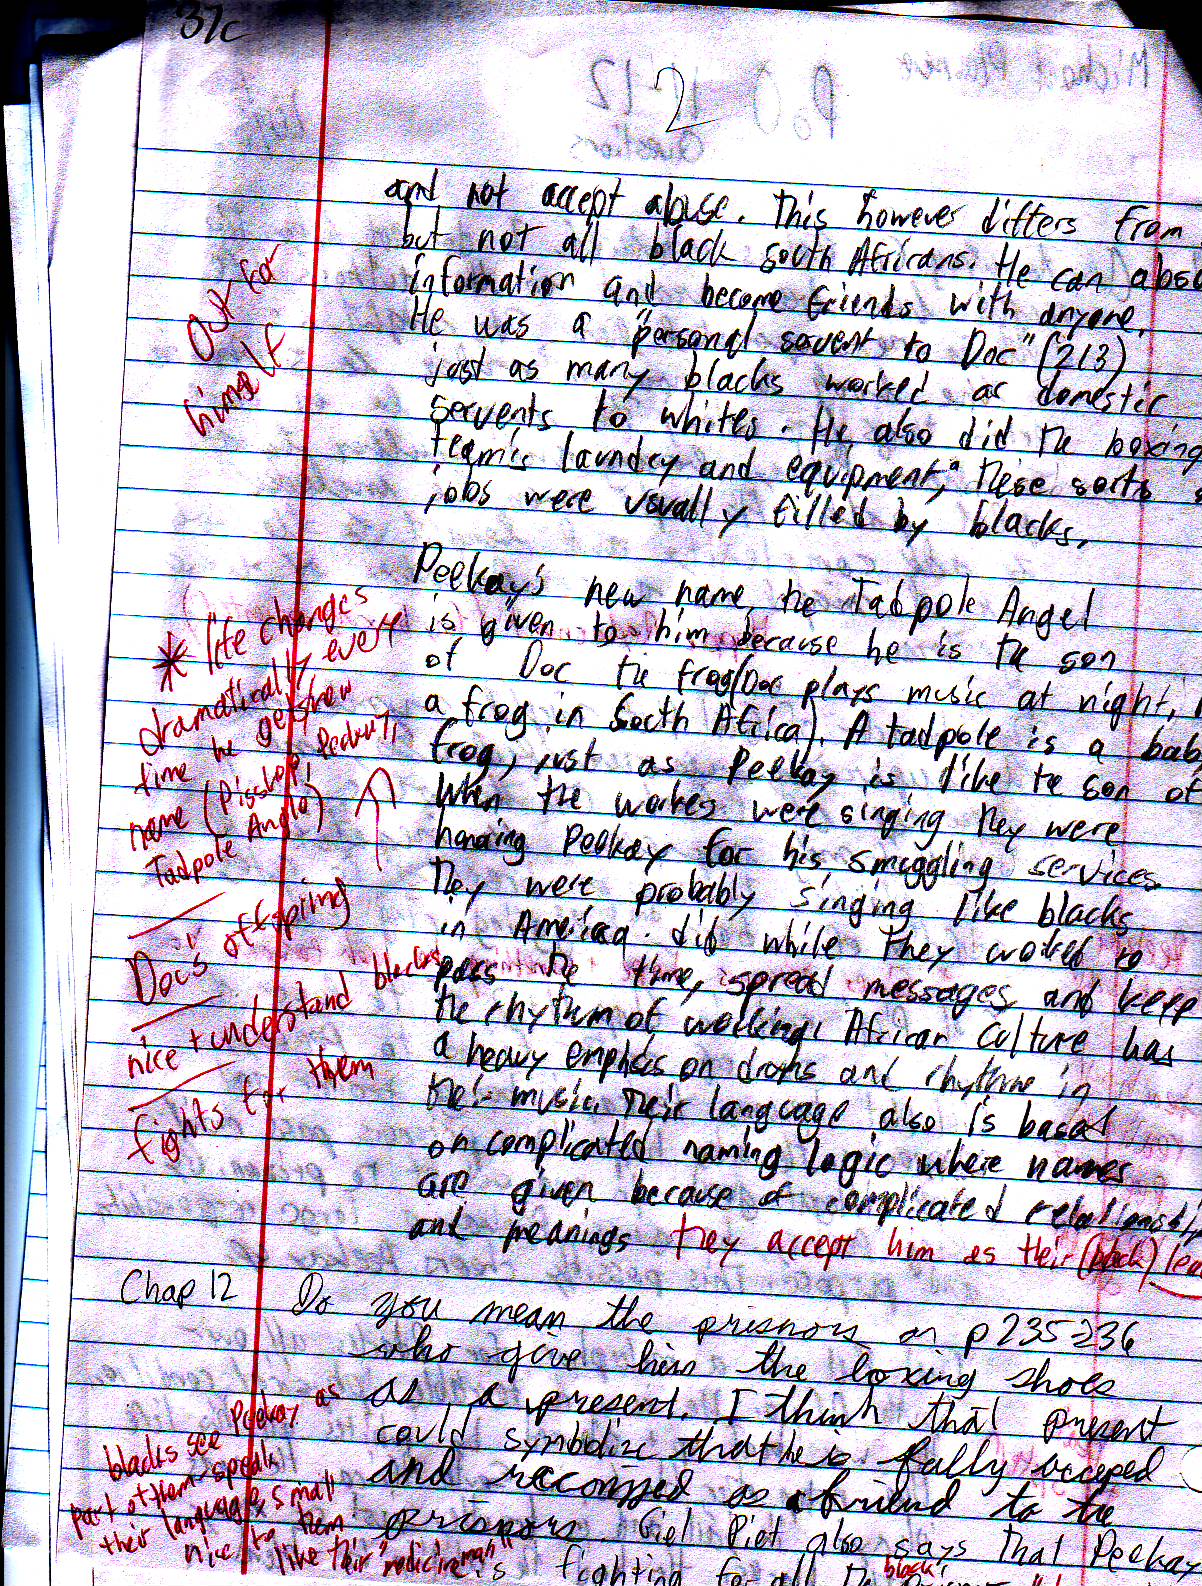 37c
2
and not accept abuse. This however differs from
but not all black South Africans. He can
information and become friends with anyone.
He was a "personal servent to Doc" (213)
just as many blacks worked as domestic
servents to whites. He also did the boxing
team's laundry and equipment, These sorts
jobs were usually filled by blacks.
Out for
himself
Peekay's new name, the Tadpole Angel
is given to him because he is the son
of Doc the frog (Doc plays music at night,
a frog in South Africa). A tadpole is a baby
frog, just as Peekay is like the son of
When the workes were singing they were
honoring Peekay for his smuggling services.
They were probably singing like blacks
in America did while they worked to
pass the time, spread messages, and keep
the rhythm of working. African culture has
a heavy emphisis on drums and rhythm in
their music. Their language also is based
on complicated naming logic where names
are given because of complicated relationship
and meanings they accept him as their (black)
* life changes
dramatically every
time he gets new
name (Pisskop, Peekay,
Tadpole Anglo)
Doc's offspring
nice + understand blacks
fights for them
Chap 12 Do you mean the prisnors on p 235-236
who give him the boxing shoes
as a present. I think that present
could symbolize that he is fully acceped
and reconized as a friend to the
prisnors. Giel Piet also says that Peekay
is fighting for all the black
blacks see Peekay as
part of them speaks
their language, small
nice to them
like their "medicine man"